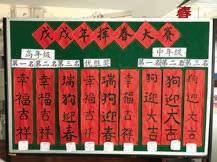 春
戊戌年挥春大赛
高年级
中年级
第一名 第二名 第三名 优胜奖
第一名 第二名 第三名
幸福吉祥
幸福吉祥
瑞狗迎春
幸福吉祥
瑞狗迎春
幸福吉祥
狗迎大吉
狗迎大吉
狗迎大吉